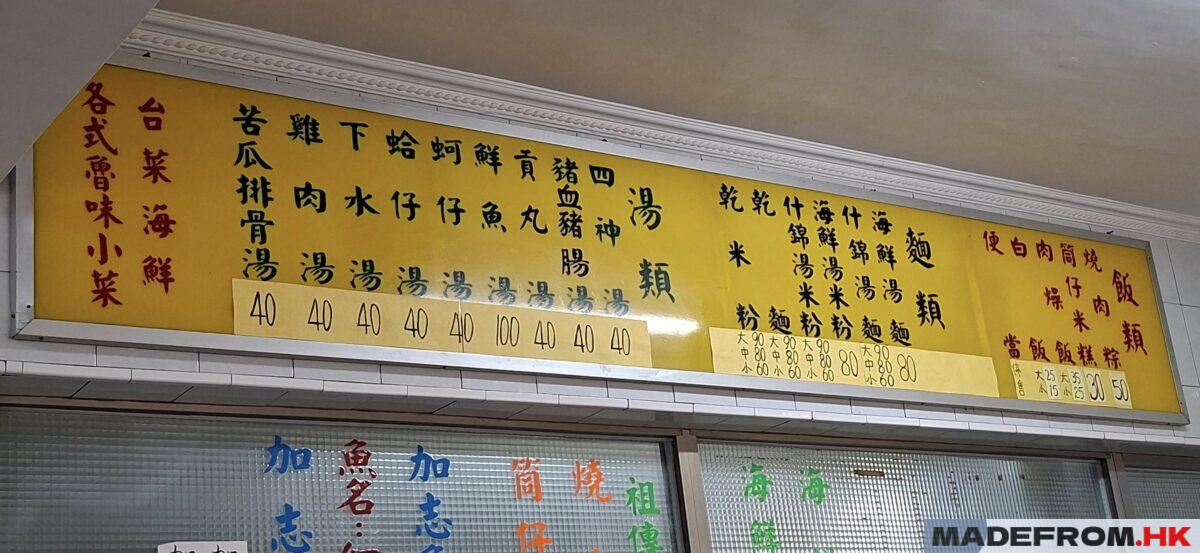 飯類
燒肉粽
50
筒仔米糕
30
肉燥飯
大35
小25
白飯
大25
小15
便當
麵類
海鮮湯麵
80
什錦湯麵
大90
中80
小60
海鮮湯米粉
80
什錦湯米粉
大90
中80
小60
乾麵
大90
中80
小60
乾米粉
大90
中80
小60
湯類
四神湯
40
豬血豬腸湯
40
貢丸湯
40
鮮魚湯
100
蚵仔湯
40
蛤仔湯
40
下水湯
40
雞肉湯
40
苦瓜排骨湯
40
台菜海鮮
各式魯味小菜
海
海鮮
祖傳
燒
筒仔
加志
魚名…
加志
MADEFROM.HK